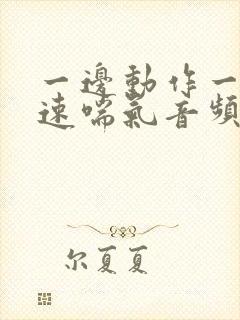 一邊動作一
速喘氣音頻
尔夏夏